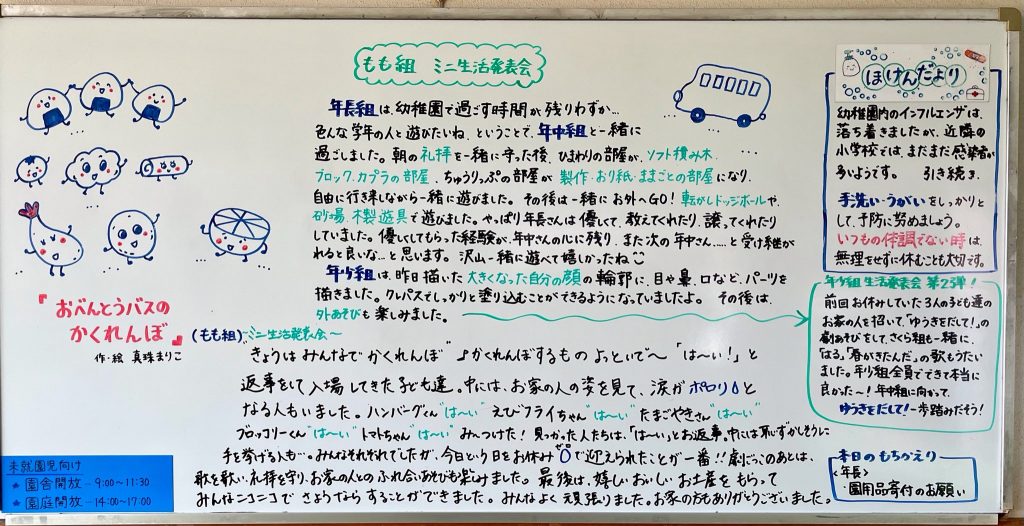 もも組 ミニ生活発表会
年長組は幼稚園で過ごす時間が残りわずか…
色んな学年の人と遊びたいね、ということで、年中組と一緒に
過ごしました。朝の礼拝を一緒に守った後、ひまわりの部屋が、ソフト積み木、
ブロック、カプラの部屋、ちゅうりっぷの部屋が製作・おり紙・ままごとの部屋になり、
自由に行き来しながら一緒に遊びました。その後は一緒にお外へGO！転がしドッジボールや、
砂場、木製遊具で遊びました。やっぱり年長さんは優しくて、教えてくれたり、譲ってくれたり
していました。優しくしてもらった経験が、年中さんの心に残り、また次の年中さん……と受け継が
れると良いな…と思います。沢山一緒に遊べて嬉しかったね
年少組は、昨日描いた大きくなった自分の顔の輪郭に、目や鼻、口など、パーツを
描きました。クレパスでしっかりと塗り込むことができるようになっていましたよ。その後は、
外あそびも楽しみました。
『おべんとうバスの
かくれんぼ』
作・絵 真珠まりこ
(もも組) ミニ生活発表会～
きょうはみんなでかくれんぼ♪かくれんぼするものよっといで～「は～い！」と
返事をして入場してきた子ども達。中には、お家の人の姿を見て、涙がポロリと
なる人もいました。ハンバーグくん"は～い"えびフライちゃん"は～い"たまごやきさん"は～い"
ブロッコリーくん"は～い"トマトちゃん"は～い"み～つけた！見つかった人たちは、「は～い」とお返事。中には恥ずかしそうに
手を挙げる人も…。みんなそれぞれでしたが、今日という日をお休み0で迎えられたことが一番！！劇ごっこのあとは、
歌を歌い、礼拝を守り、お家の人とのふれ合いあそびも楽しみました。最後は、嬉しいおいしいお土産をもらって
みんなニコニコでさようならすることができました。みんなよく頑張りました。お家の方もありがとうございました。
未就園児向け
★ 園舎開放－9:00～11:30
★ 園庭開放－14:00～17:00
ほけんだより
幼稚園内のインフルエンザは、
落ち着きましたが、近隣の
小学校では、まだまだ感染者が
多いようです。引き続き、
手洗い・うがいをしっかりと
して、予防に努めましょう。
いつもの体調でない時は、
無理をせずに休むことも大切です。
年少組 生活発表会 第2弾！
前回お休みしていた3人の子ども達の
お家の人を招いて、「ゆうきをだして！」の
劇あそびをして、さくら組も一緒に、
「はる」「春がきたんだ」の歌もうたい
ました。年少組全員でできて本当に
良かった～！年中組に向かって、
ゆうきをだして！一歩踏みだそう！
本日のもちかえり
<年長>
・園用品寄付のお願い